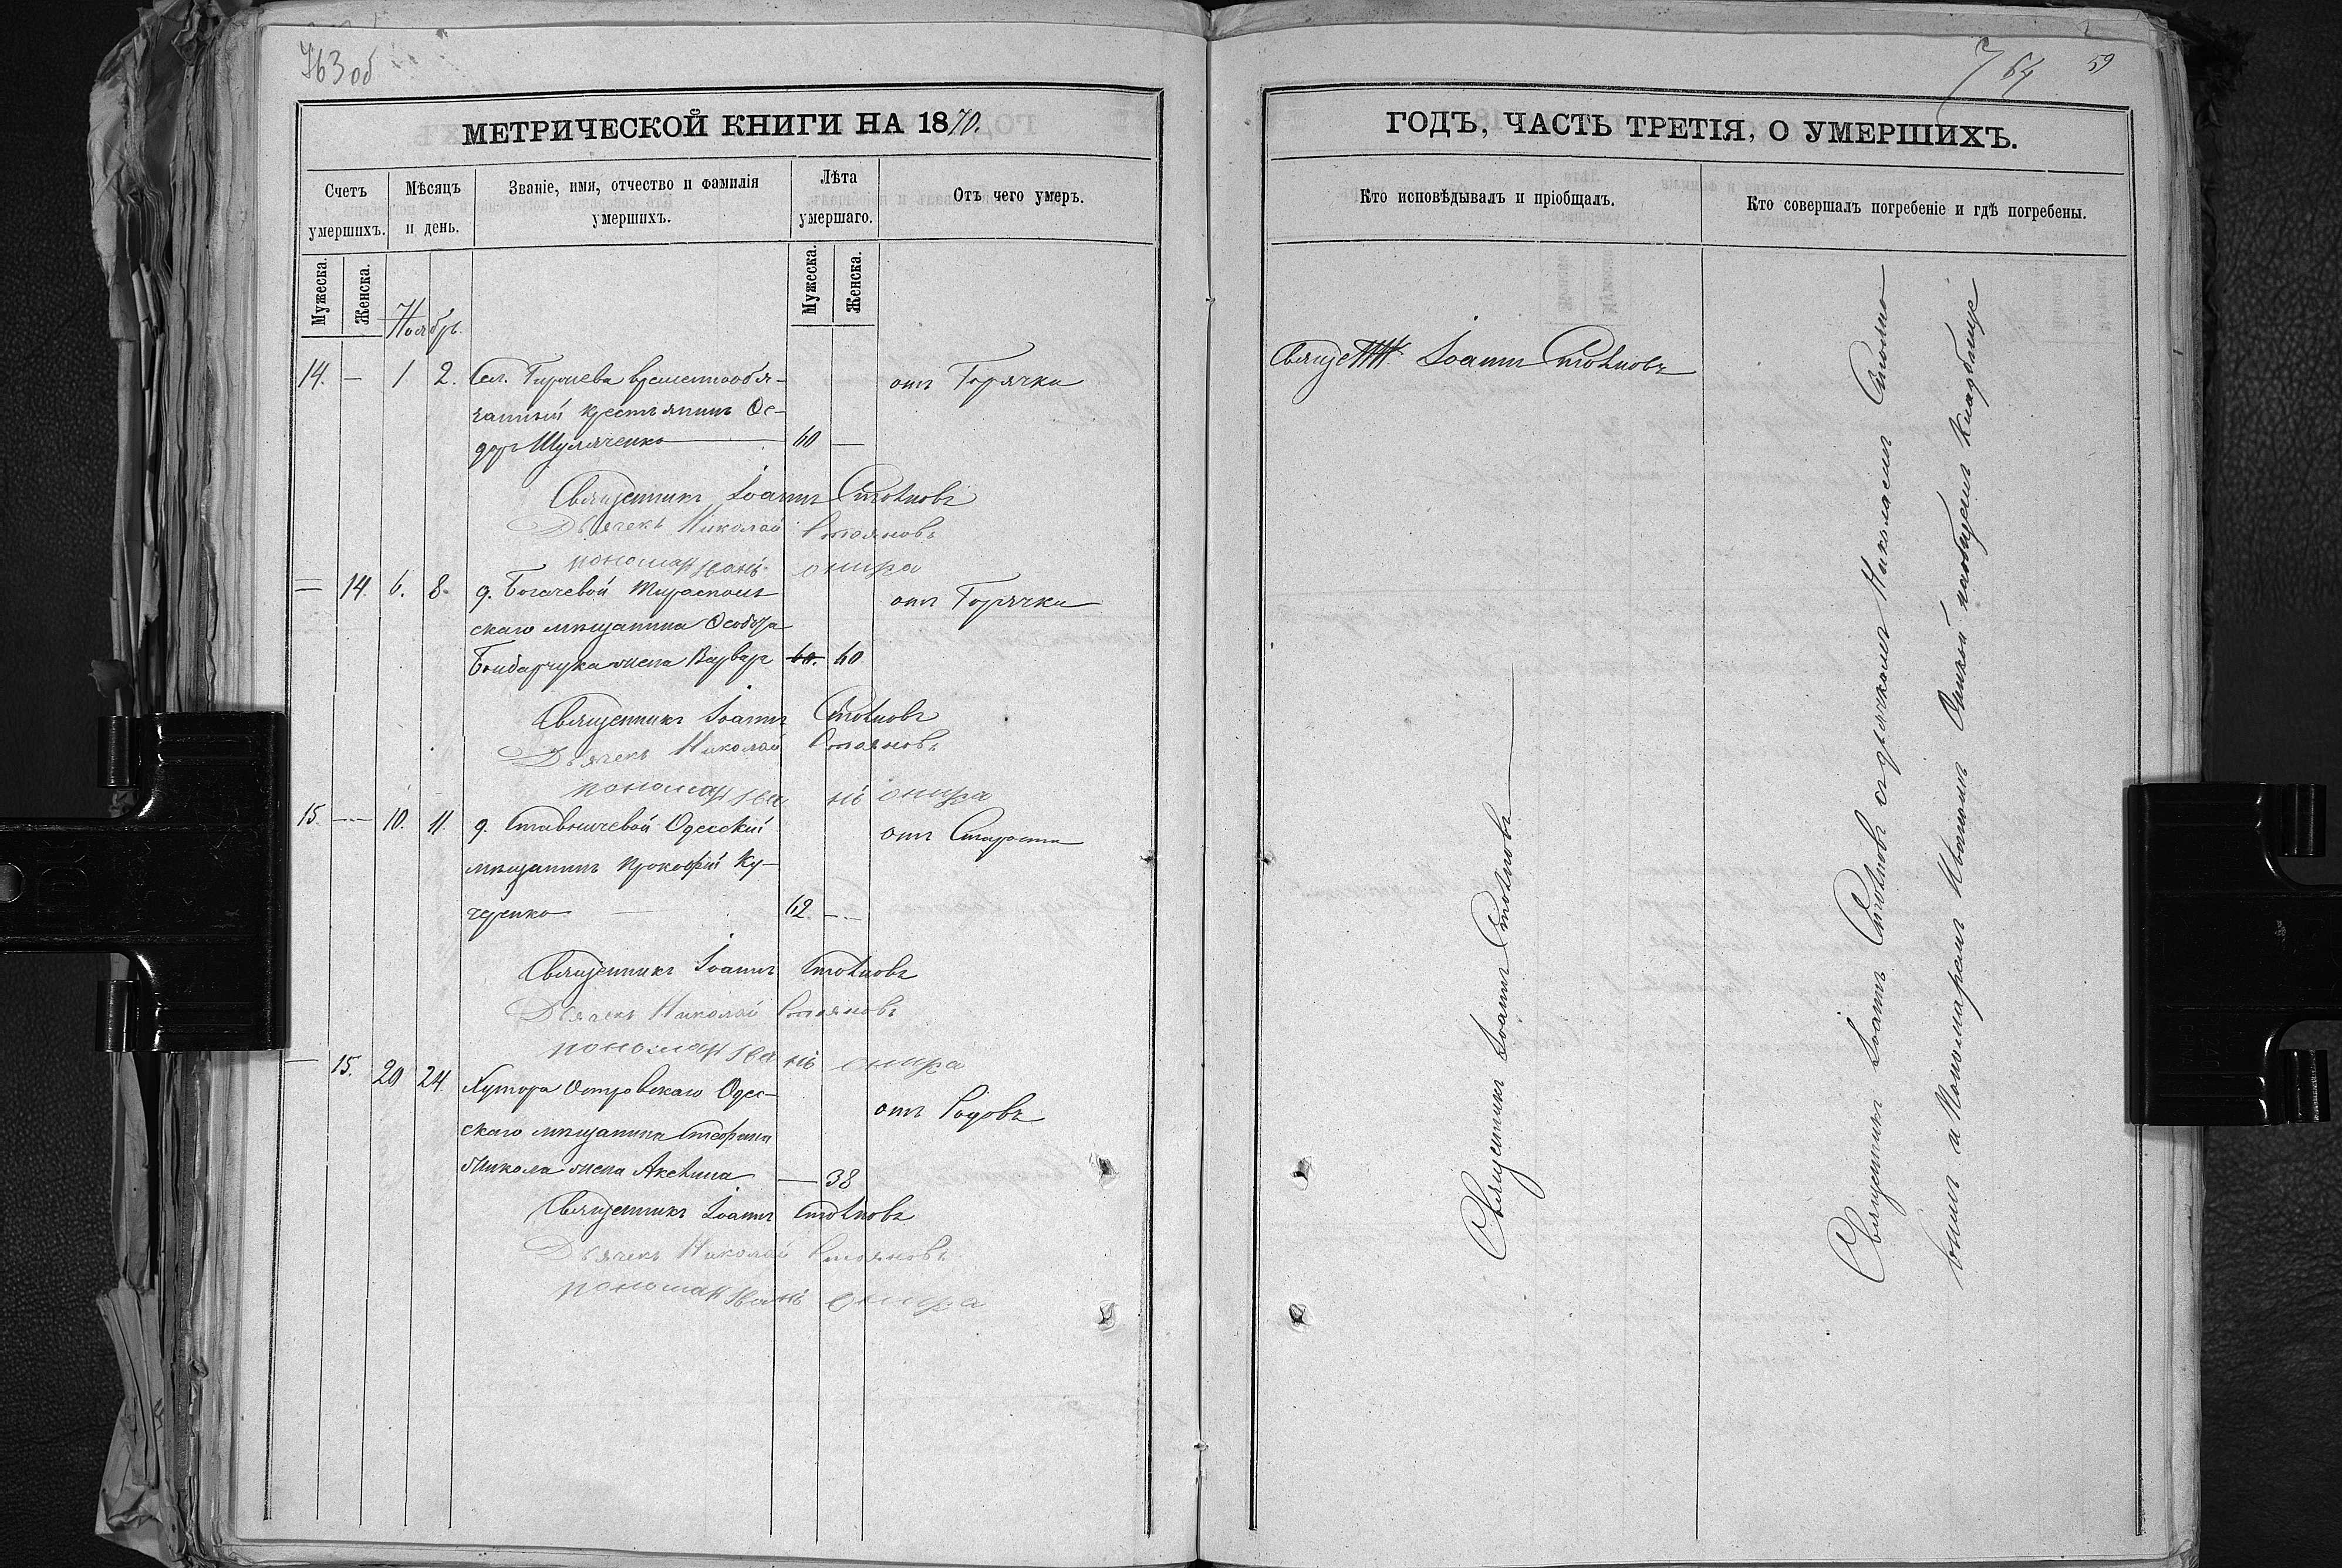 763 об
МЕТРИЧЕСКОЙ КНИГИ НА 1870.
Счетъ умершихъ.
Мѣсяцъ и день.
Званіе, имя, отчество и фамилія умершихъ.
Лѣта умершаго.
Отъ чего умеръ.
Мужеска.
Женска.
Мужеска.
Женска.
Ноябрь
14. — 1. 2. Сел. временнообя- отъ Горячки
занный крестьянинъ Ѳе-
доръ Шуляченко 60 —
Священникъ Іоаннъ Стояновъ
Дьячекъ Николай Стояновъ
пономарь Иванъ
— 14. 6. 8. д. Богачевой Тирасполь отъ Горячки
скаго мѣщанина Ѳеодора
Бондарчука жена Варвар 60. 60
Священникъ Іоаннъ Стояновъ
Дьячекъ Николай Стояновъ
пономарь Иванъ
15. — 10. 11. д. Одесскій отъ Старости
мѣщанинъ Прокофій Ку-
черенко 62 —
Священникъ Іоаннъ Стояновъ
Дьячекъ Николай Стояновъ
пономарь Иванъ
— 15. 20 24. Хутора Островскаго Одес- отъ Родовъ
скаго мѣщанина Стефана
жена Аксинія — 38
Священникъ Іоаннъ Стояновъ
Дьячекъ Николай Стояновъ
пономарь Иванъ
764 59
ГОДЪ, ЧАСТЬ ТРЕТІЯ, О УМЕРШИХЪ.
Кто исповѣдывалъ и пріобщалъ.
Кто совершалъ погребеніе и гдѣ погребены.
Іоаннъ Стояновъ
Священникъ Іоаннъ Стояновъ
Священникъ Іоаннъ Стояновъ съ дьячкомъ Николаемъ Стояно
вымъ и Пономаремъ Иваномъ на общемъ Кладбище